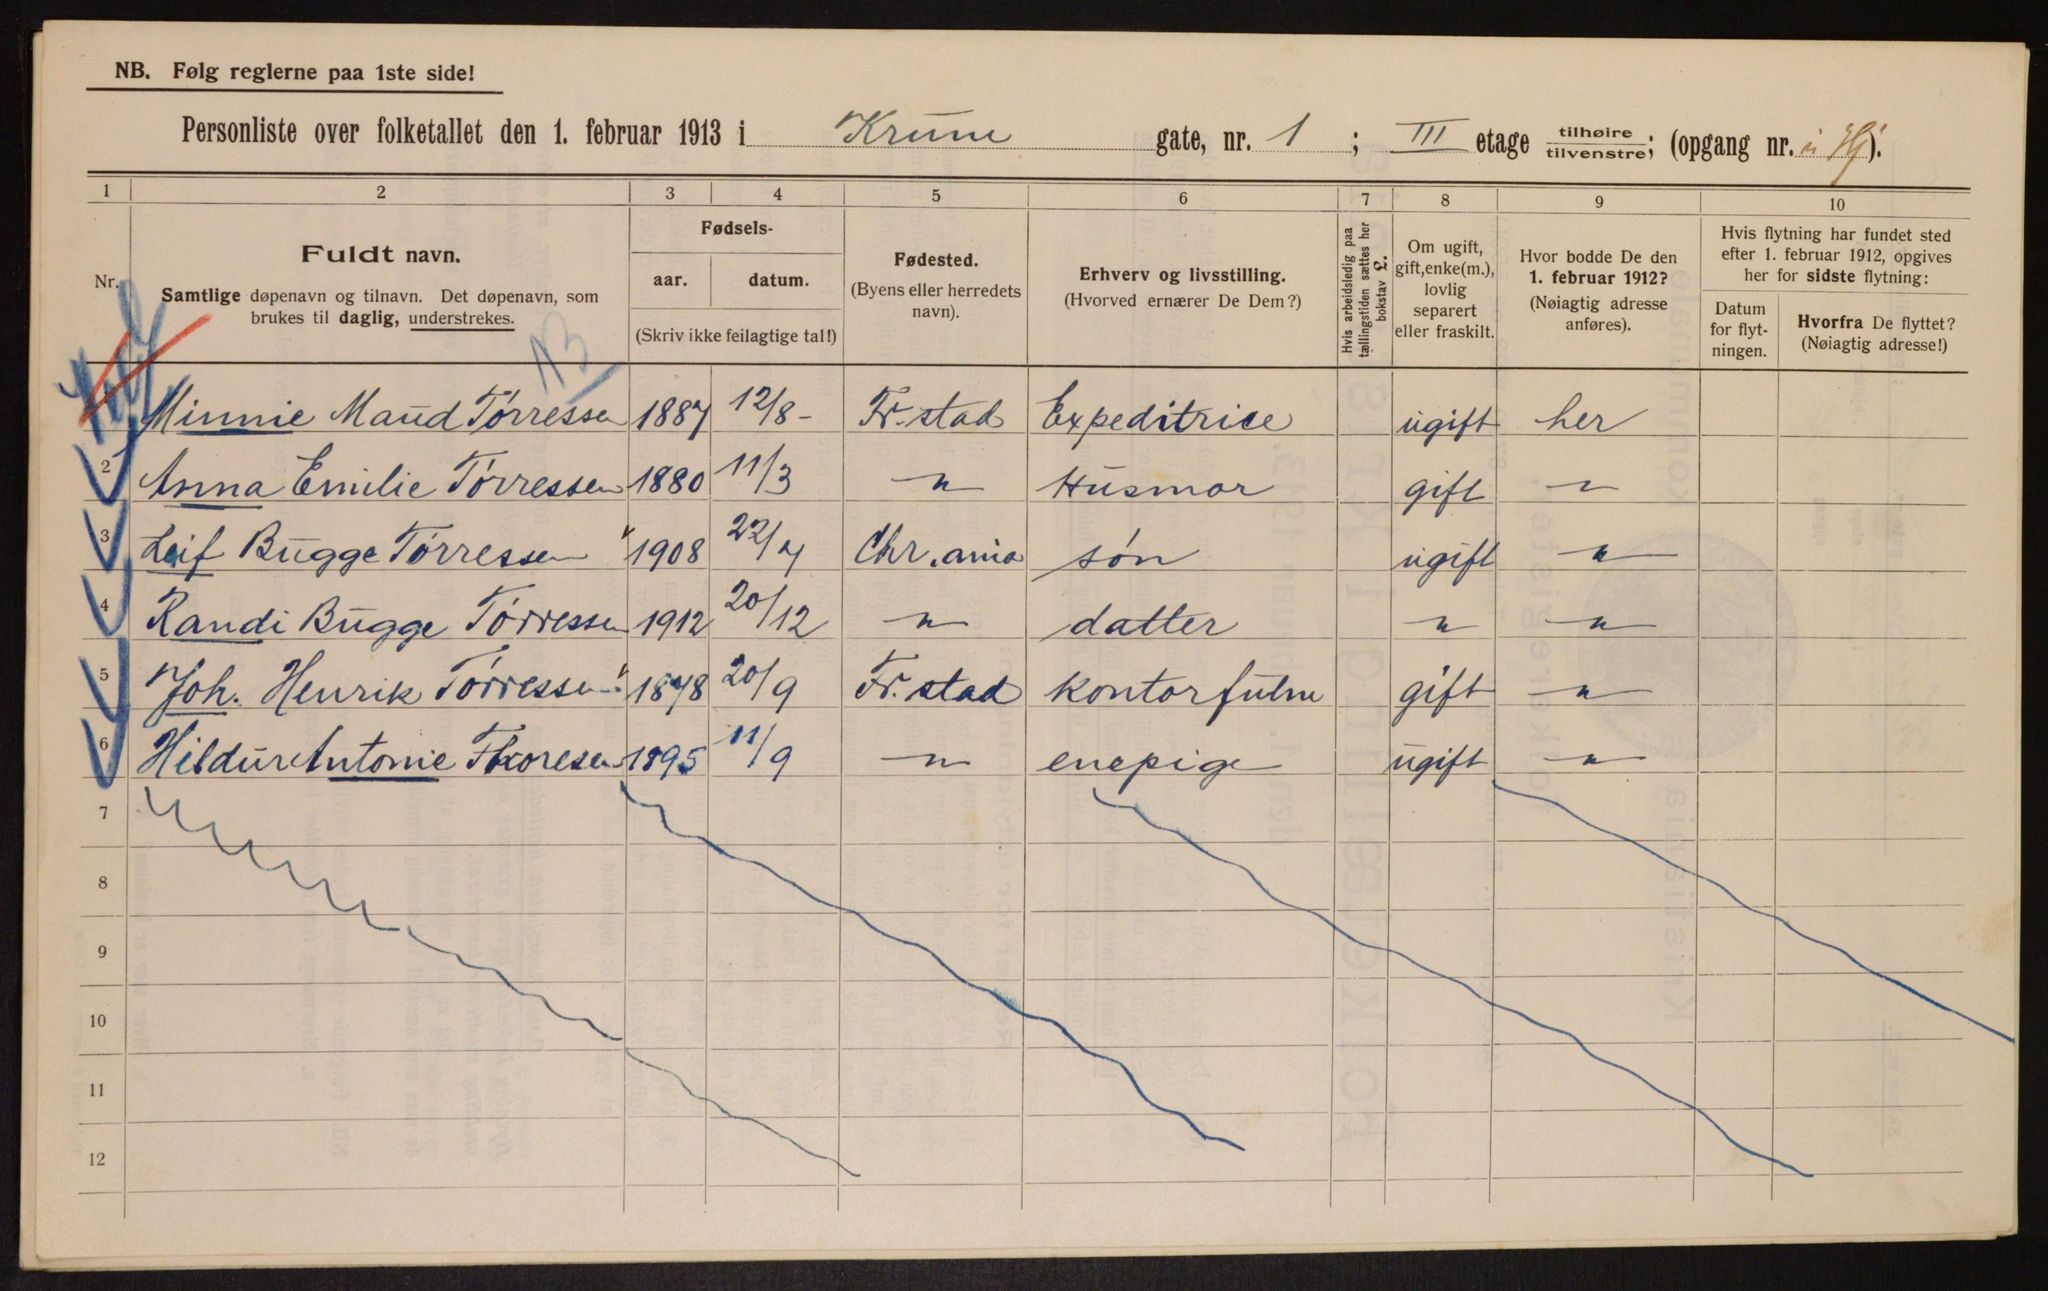 NB. Følg reglerne paa 1ste side!
Personliste over folketallet den 1. februar 1913 i Krum gate, nr. 1; III etage tilhøire/tilvenstre; (opgang nr. i Hj).
1 2 3 4 5 6 7 8 9 10
Nr.
Fuldt navn.
Samtlige døpenavn og tilnavn. Det døpenavn, som
brukes til daglig, understrekes.
Fødsels-
aar. datum.
(Skriv ikke feilagtige tal!)
Fødested.
(Byens eller herredets
navn).
Erhverv og livsstilling.
(Hvorved ernærer De Dem?)
Hvis arbeidsledig paa
tællingstiden sættes her
bokstav £.
Om ugift,
gift, enke(m.),
lovlig
separert
eller fraskilt.
Hvor bodde De den
1. februar 1912?
(Nøiagtig adresse
anføres).
Hvis flytning har fundet sted
efter 1. februar 1912, opgives
her for sidste flytning:
Datum
for flyt-
ningen.
Hvorfra De flyttet?
(Nøiagtig adresse!)
13
Minnie Maud Tørressen 1887 12/8 - Fr.stad Expeditrice ugift her
2 Anna Emilie Tørressen 1880 11/3 " Husmor gift "
3 Leif Bugge Tørressen 1908 22/7 Chr.ania søn ugift "
4 Randi Bugge Tørressen 1912 20/12 " datter " "
5 Joh. Henrik Tørressen 1878 20/9 Fr.stad kontorfulm gift "
6 Hildur Antonie Thoresen 1895 11/9 " enepige ugift "
7
8
9
10
11
12